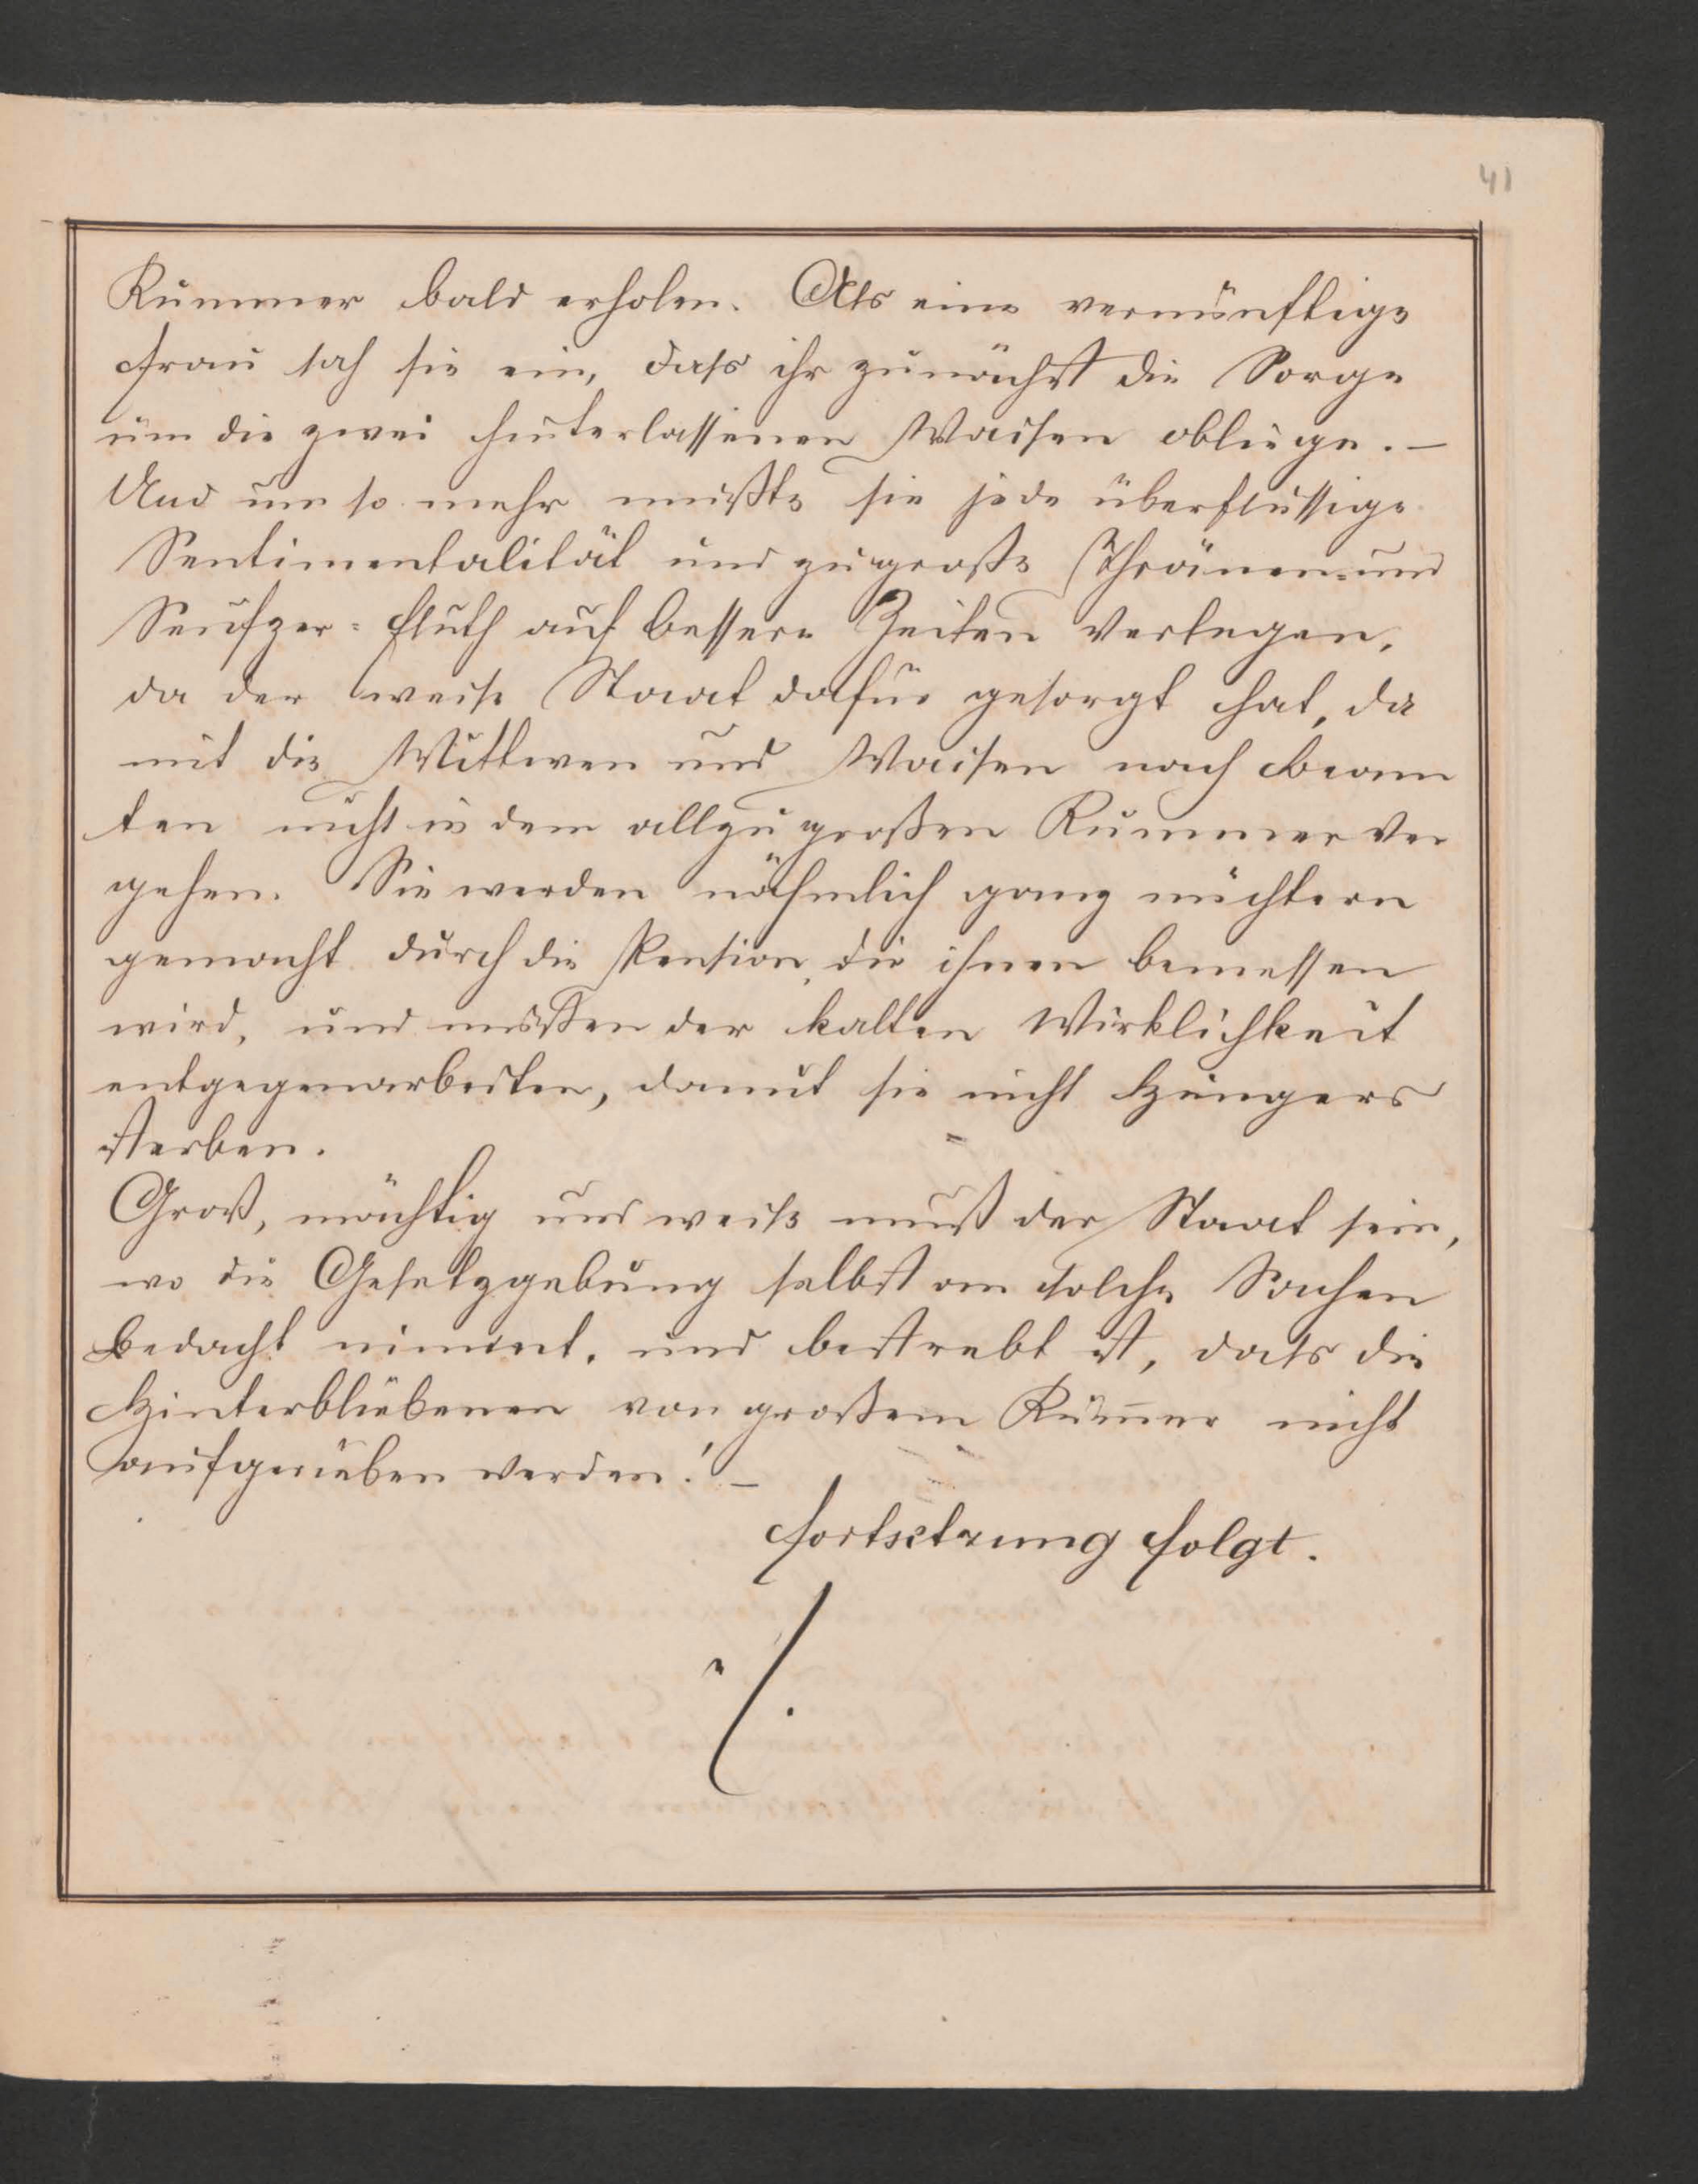 41
Kummer bald erholen. Als eine vernünftige
Frau sah sie ein, dass ihr zunächst die Sorge
um die zwei hinterlassenen Waisen obliege. –
Und um so mehr mußte sie jede überflussige
Sentimentalität und zu große Thränen- und
Seufzer-Fluth auf bessere Zeiten verlegen,
da der weise Staat dafür gesorgt hat, da
mit die Wittwen und Waisen nach Beam
ten nicht in dem allzu großen Kummer ver
gehen. Sie werden nähmlich ganz nüchtern
gemacht durch die Pension, die ihnen bemessen
wird, und müßen der kalten Wirklichkeit
entgegenarbeiten, damit sie nicht Hungers
sterben.
Groß, mächtig und weise muß der Staat sein,
wo die Gesetzgebung selbst an solche Sachen
Bedacht nimmt, und bestrebt ist, dass die
Hinterbliebenen von großem Kum̄er nicht
aufgerieben werden! –
Fortsetzung folgt.